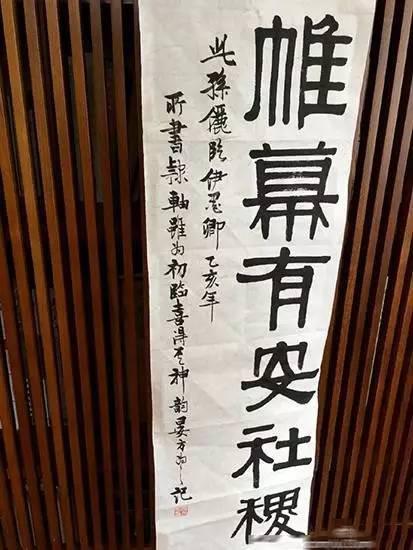 帷幕有安社稷
此孫儷臨伊墨卿乙亥年
所書隸軸雖為初臨喜得其神韻晏方為之記